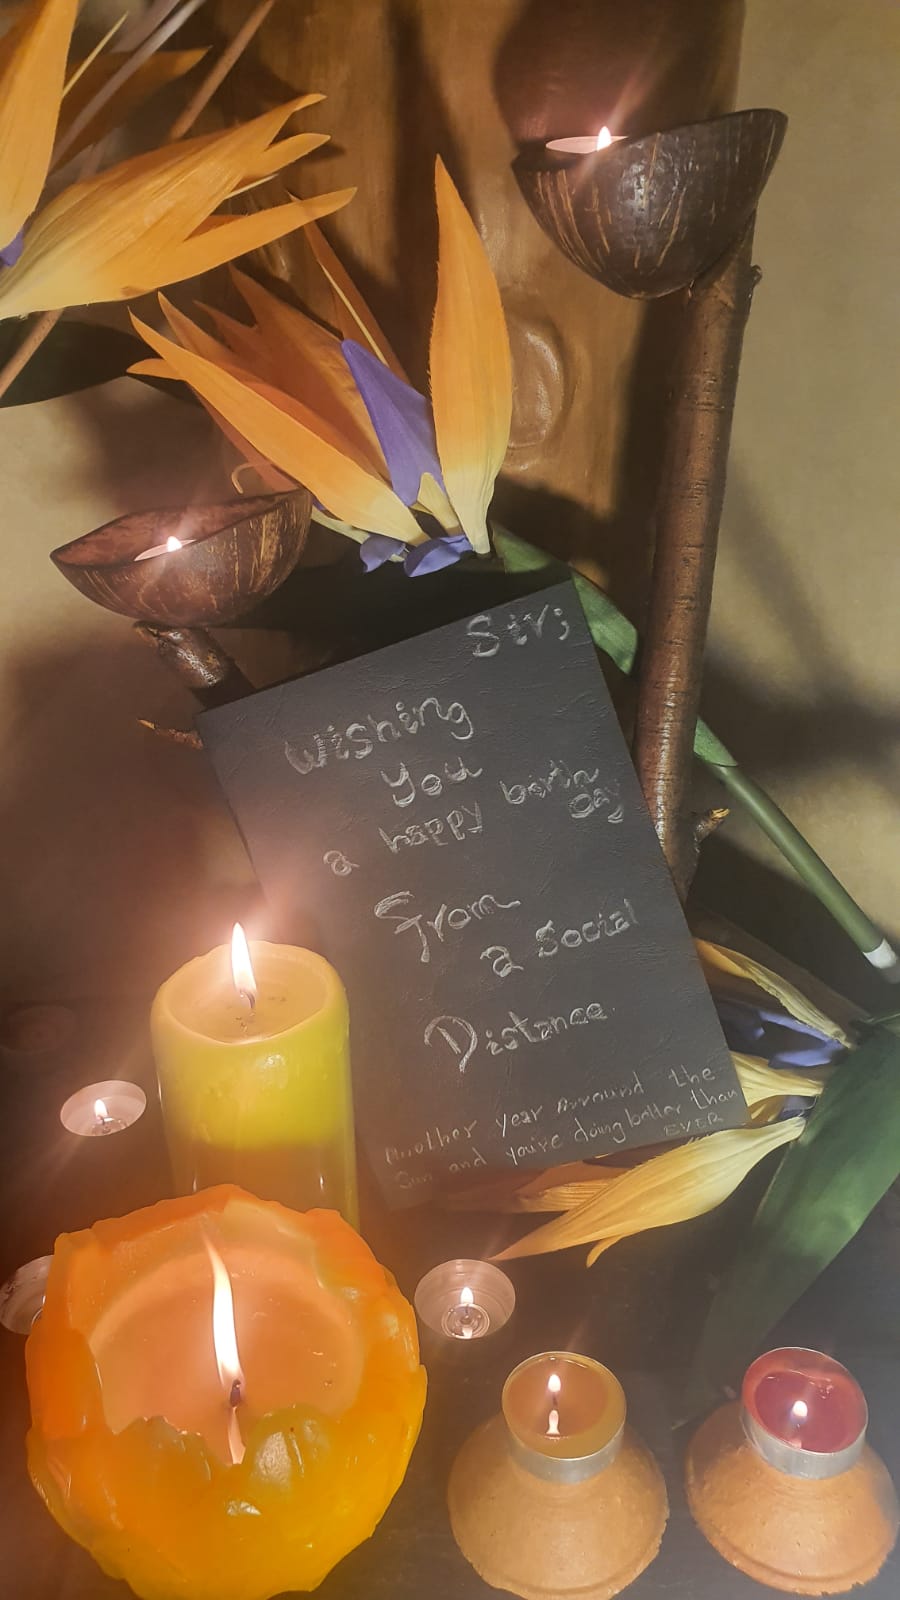 Sir;
Wishing
you
a happy birth
day
From
a Social
Distance.
Another year Arround the
Sun and you're doing better than
EVER